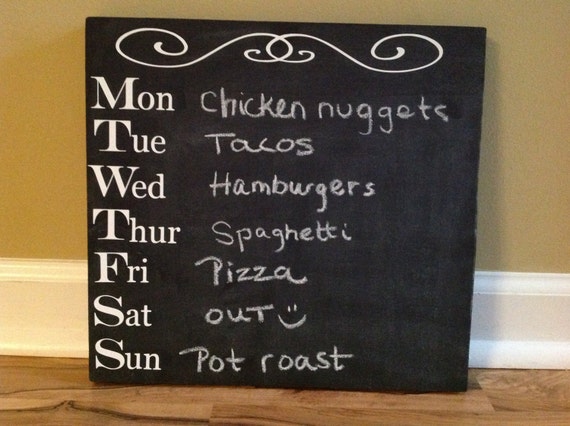 Mon Chicken nuggets
Tue Tacos
Wed Hamburgers
Thur Spaghetti
Fri Pizza
Sat OUT
Sun Pot roast